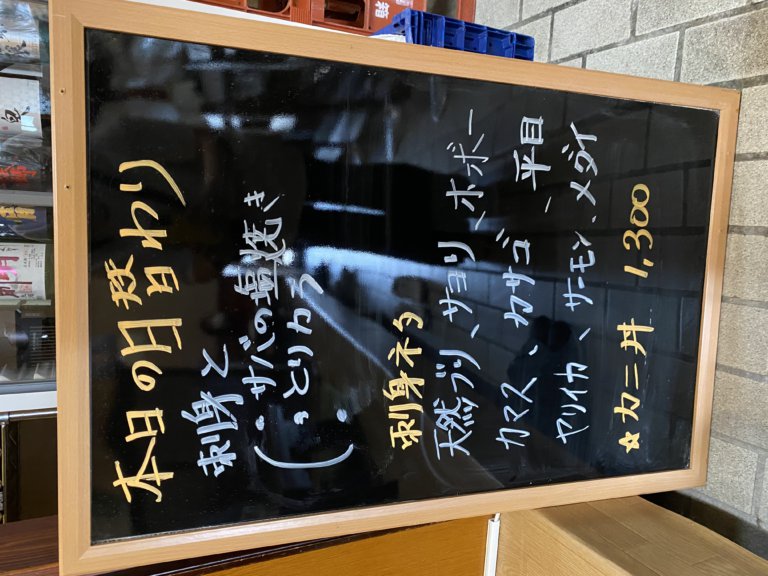 本日の日替わり
刺身と
・サバの塩焼き
・とりカラ
刺身ネタ
天然ブリ、サヨリ、ホーボー
カマス、カサゴ、平目
ヤリイカ、サーモン、メダイ
☆カニ丼 1,300
箱